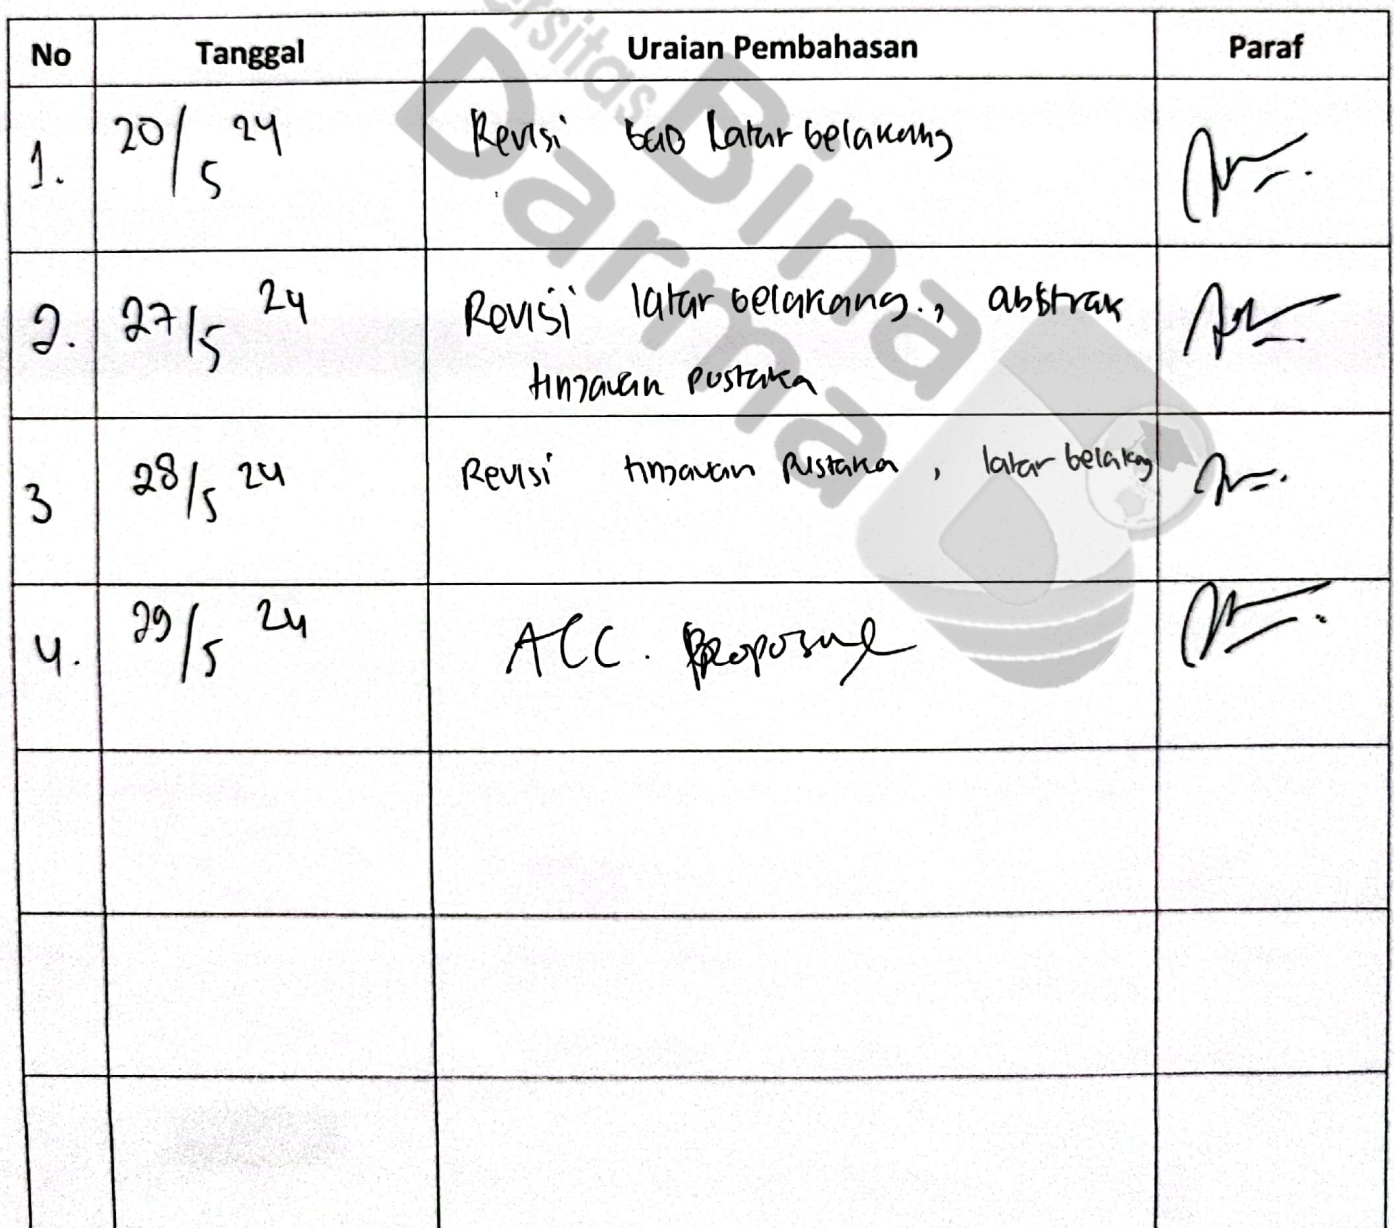 No Tanggal Uraian Pembahasan Paraf
1. 20/5 24 Revisi bab Latar belakang
2. 27/5 24 Revisi latar belakang., abstrak
tinjauan pustaka
3 28/5 24 Revisi tinjauan pustaka, latar belakang
4. 29/5 24 ACC. Proposal
ersitas
Bina
Darma